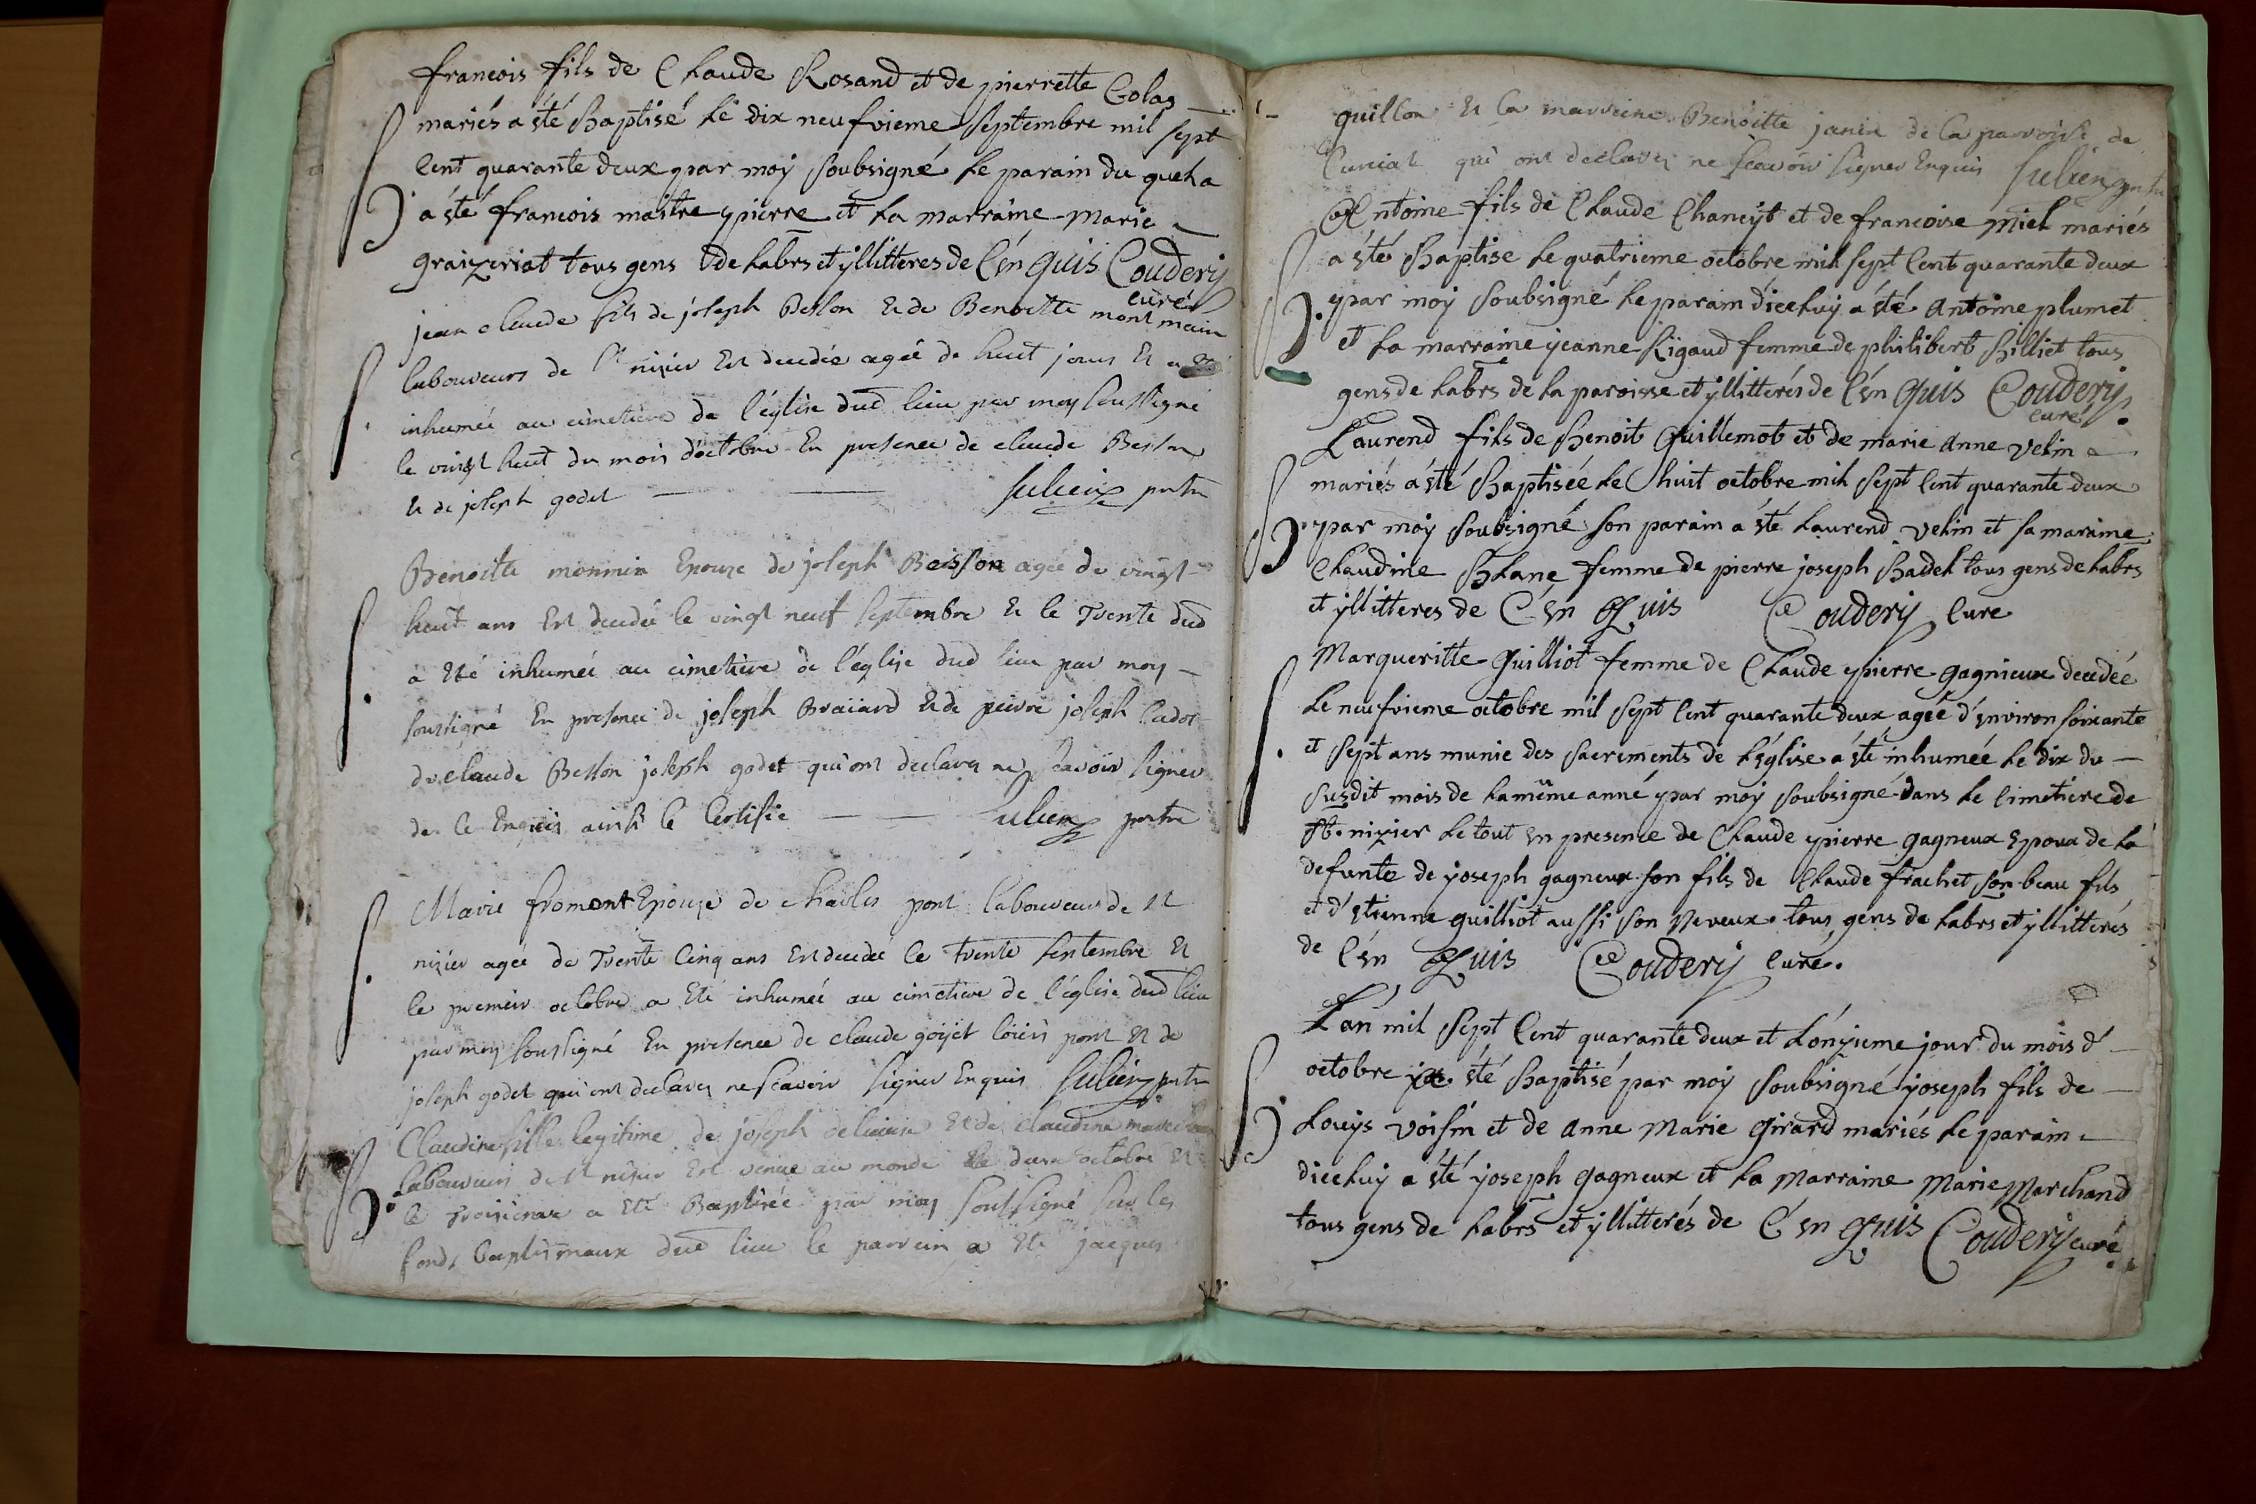 francois fils de Claude Rosand et de pierrette Colas
mariés a été baptisé le dix neufvieme septembre mil sept
cent quarante deux par moy soubsigné le parain du quel a
a été francois maitre pierre et la marraine marie
graizeriat tous gens de labrs et yllitteres de C'én quis Coudery
curé
jean claude fils de joseph Besson et de Benoitte montmain
laboureurs de St nizier est decedée ageé de huit jours et a été
inhumée au cimetiere de l'église dud lieu par moy soussigné
le vingt huit du mois d'octobre en presence de claude Besson
et de joseph godet Julien prtre
Benoite monmin Epouze de joseph Beisson ageé de vingt
huit ans est decedée le vingt neuf septembre et le Trente dud
a eté inhumée au cimetiere de l'église dud lieu par moy
soussigné en presence de joseph Braiard et de pierre joseph
de claude Besson joseph godet qui ont declarez ne scavoir signer
de ce Enquis ainsi le Certifie Julien prtre
Marie fromont Epouze de charles pont laboureur de St
nizier ageé de Trente Cinq ans est decedée le trente septembre et
le premier octobre a eté inhumée au cimetiere de l'église dud lieu
par moy soussigné En presence de claude goyet loüis pont et de
joseph godet qui ont declarez ne scavoir signer Enquis Julien prtre
Claudine fille legitime de joseph et de claudine
laboureurs de St nizier est venue au monde le deux octobre et
le troisieme a eté Baptisée par moy soussigné sur les
fonds baptismaux dud lieu le parrein a eté jacques
guillon et la marreine Benoitte janin de la parroisse de
Curciat qui ont declarez ne scavoir signer Enquis Julien prtre
Antoine fils de Claude Chancyt et de francoise Miel mariés
a été baptise le quatrieme octobre mil sept cent quarante deux
par moy soubsigné le parain d'icelluy a été antoine plumet
et la marraine jeanne Rigaud femme de philibert billiet tous
gens de labrs de la paroisse et yllitterés de C'én Quis Coudery
curé
Laurend fils de benoit Guillemot et de marie anne velin
mariés a été baptiseé le huit octobre mil sept cent quarante deux
par moy soubsigné son parain a été laurend velin et sa maraine
Claudine blanc femme de pierre joseph badel tous gens de labrs
et yllitteres de C'én Quis Coudery Cure
Margueritte Guilliot femme de Claude pierre gagnieux decedée
le neufvieme octobre mil sept cent quarante deux ageé d'environ soixante
et sept ans munie des sacrements de l'église a été inhumée le dix du
susdit mois de la même anné par moy soubsigné dans le cimetiere de
St. nizier le tout en presence de Claude pierre gagneux epoux de la
defunte de joseph gagneux son fils de Claude frachet son beau fils
et d'etienne guilliot aussi son neveux tous gens de labrs et yllitterés
de C'én Quis Coudery Curé.
L'an mil sept cent quarante deux et l'onzieme jour du mois d'
octobre a été baptisé par moy soubsigné joseph fils de
Louys voisin et de anne Marie Girard mariés le parain
dicelluy a été joseph gagneux et la marraine Marie Marchand
tous gens de labrs et yllitterés de C'én Quis Coudery curé